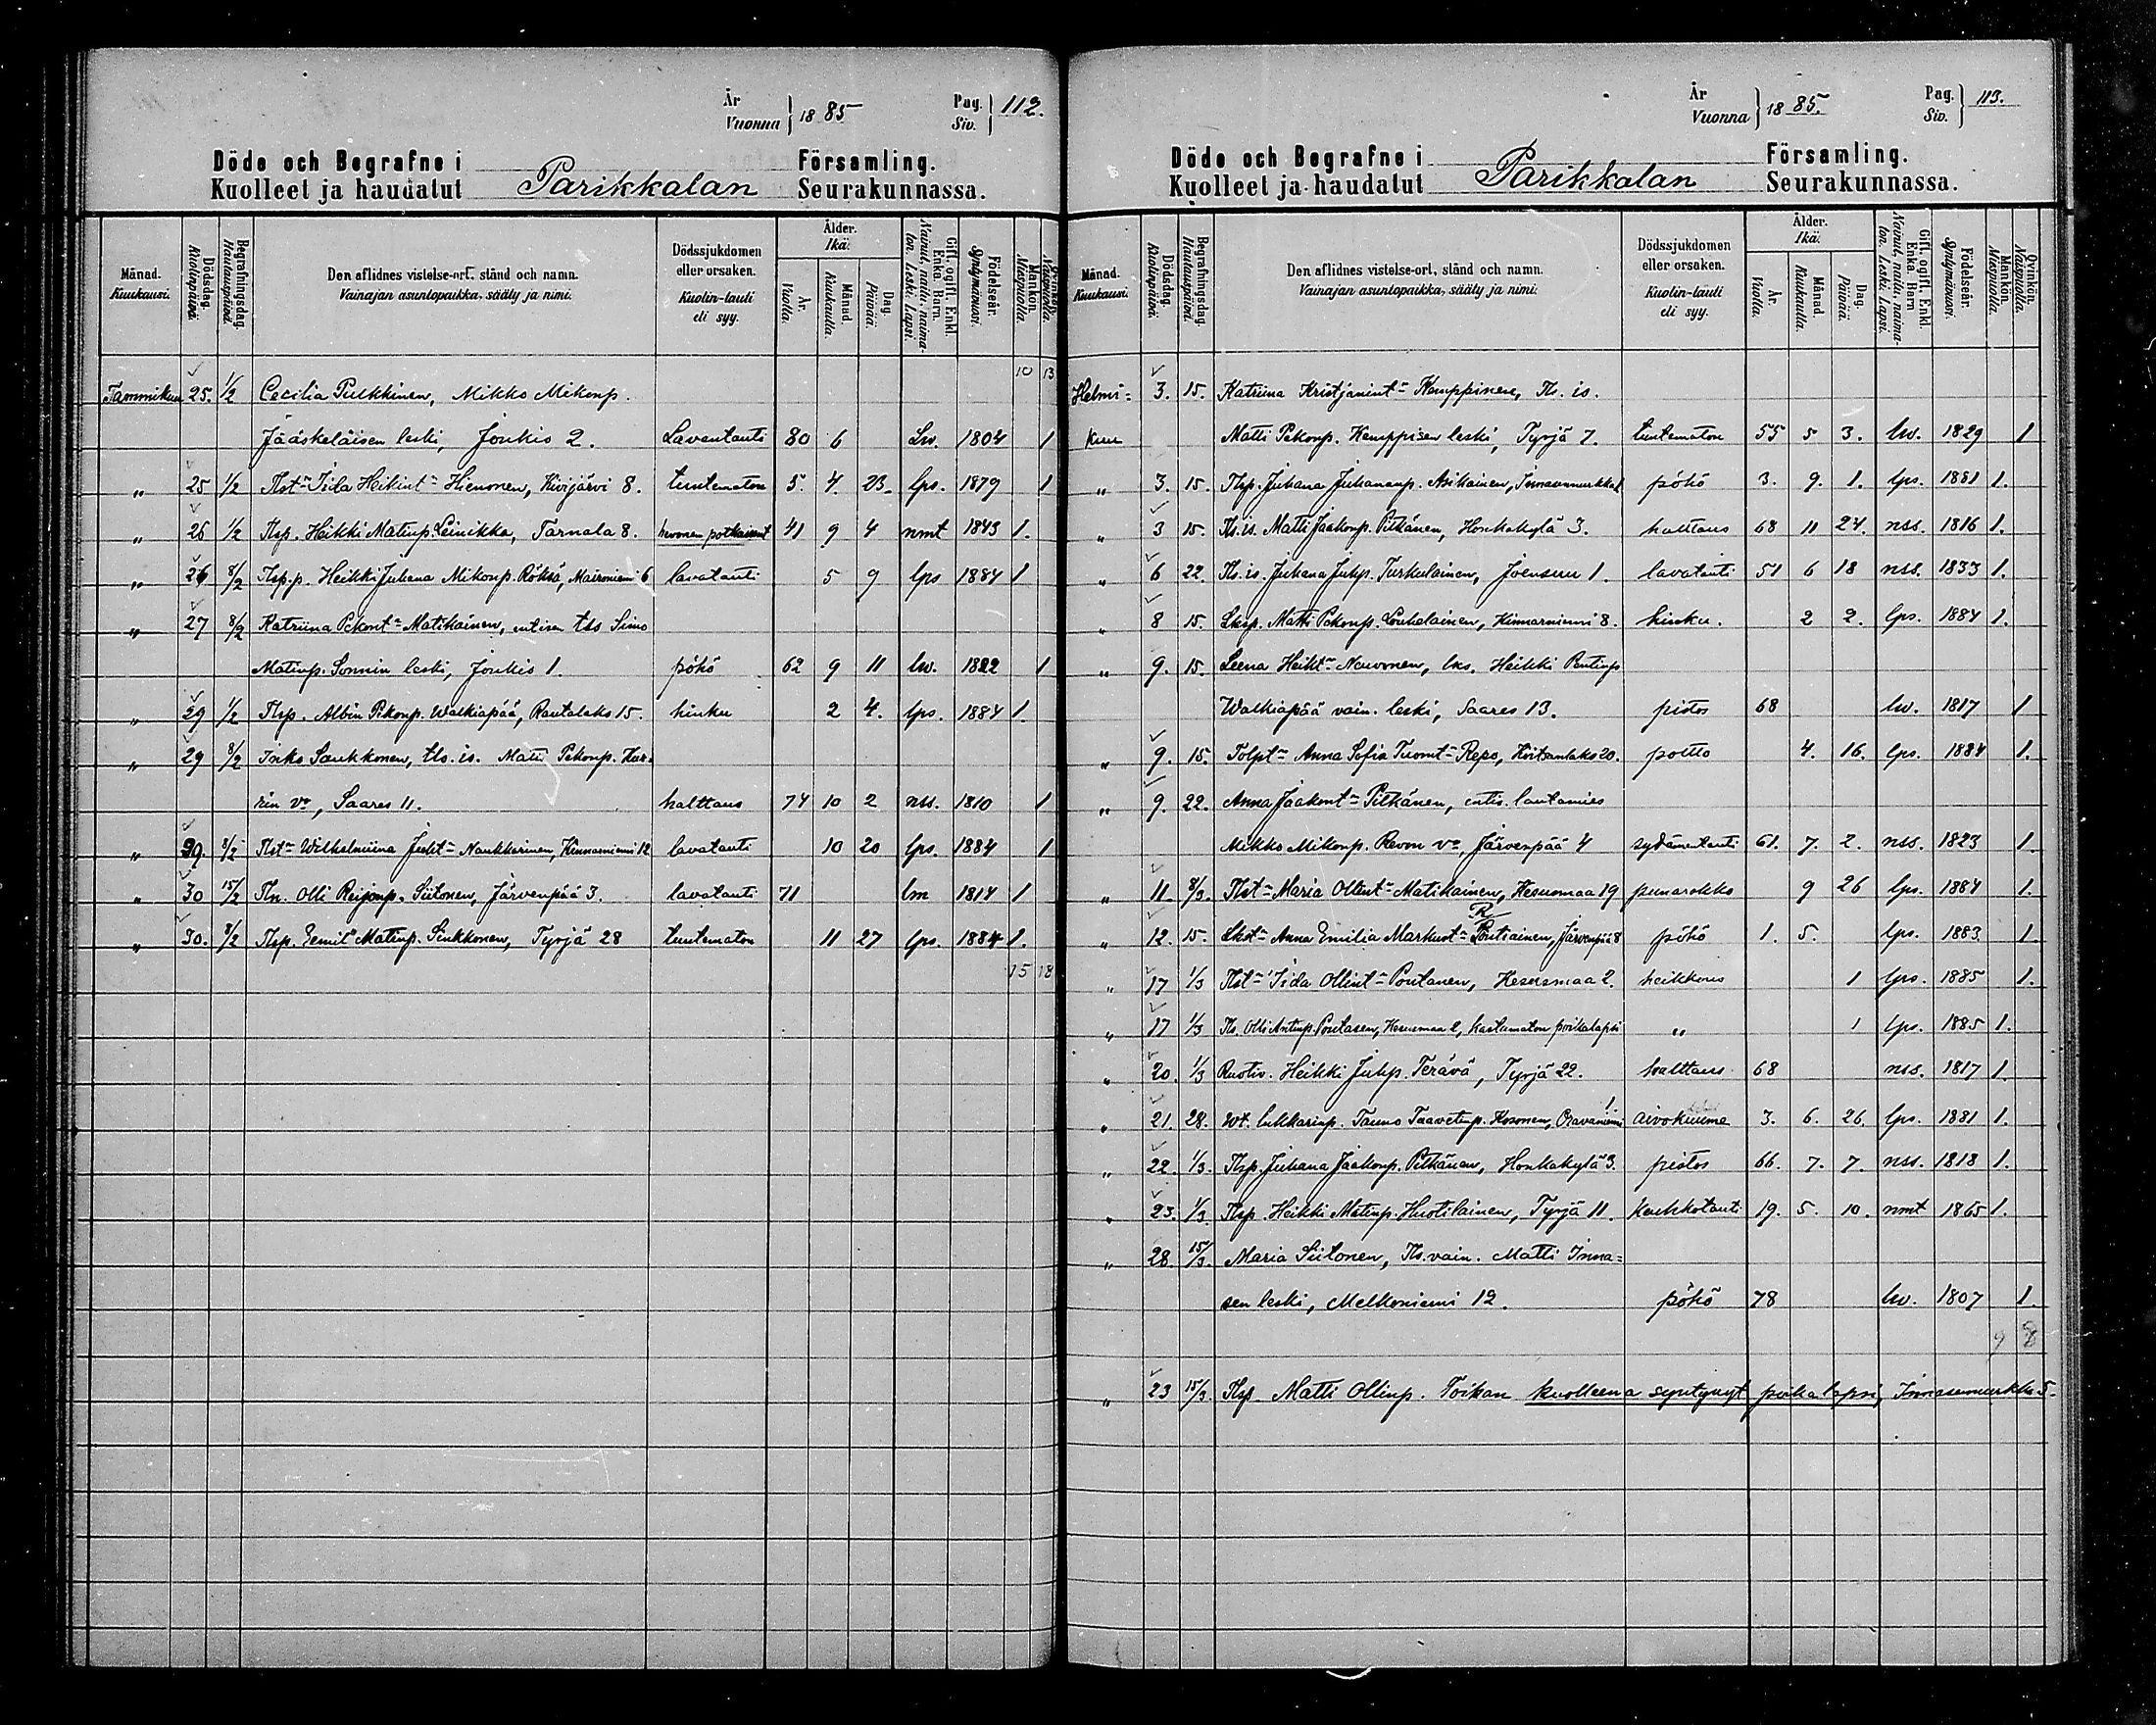 År
Vuonna } 1885
Pag.
Siv. } 112.
Döde och Begrafne i Församling.
Kuolleet ja haudatut Parikkalan Seurakunnassa.
Månad. Kuukausi.
Dödsdag. Kuolinpäivä.
Begrafningsdag. Hautauspäivä.
Den aflidnes vistelse-ort, stånd och namn. Vainajan asuntopaikka, sääty ja nimi.
Dödssjukdomen eller orsaken. Kuolin-tauti eli syy.
Ålder. Ikä.
År. Vuotta.
Månad. Kuukautta.
Dag. Päivää.
Gift, ogift. Enkl. Enka. Barn. Nainut, naitu, naimaton. Leski. Lapsi.
Födelseår. Syntymävuosi.
Mankön. Miespuolia.
Qvinkön. Naispuolia.
10 13
Tammikuu 25. 1/2 Cecilia Pulkkinen, Mikko Mikonp.
Jääskeläisen leski, Joukio 2. Lavantauti 80 6 Lw. 1804 1
" 25 1/2 Tlst:n Iida Heikint:r Hienonen, Kivijärvi 8. tuntematon 5. 4. 23. lps. 1879 1
" 26 1/2 Tlsp. Heikki Matinp. Leinikka, Tarnala 8. hevonen potkaissut 41 9 4 nmt 1843 1.
" 26 8/2 Tlsp.p. Heikki Juhana Mikonp. Röksä, Maironiemi 6 lavatauti 5 9 lps 1884 1
" 27 8/2 Katriina Pekont:r Matikainen, entisen tls Simo
Matinp. Sonnin leski, Joukio 1. pöhö 62 9 11 lw. 1822 1
" 29 1/2 Tlsp. Albin Pekonp. Walkiapää, Rautalaks 15. hinku 2 4. lps. 1884 1.
" 29 8/2 Inko Saukkonen, tls. is. Matti Pekonp. Kur-
kin vo, Saares 11. halttaus 74 10 2 nss. 1810 1
" 29. 8/2 Tlst:r Wilhelmiina Juht:r Naukkarinen, Kinnarniemi 12 lavatauti 10 20 lps. 1884 1
" 30 15/2 Tln. Olli Reijonp. Siitonen, Järvenpää 3. lavatauti 71 lm 1814 1
" 30. 8/2 Tlsp. Eemil Matinp. Sinkkonen, Tyrjä 28 tuntematon 11 27 lps. 1884 1.
15 18
År
Vuonna } 1885.
Pag.
Siv. } 113.
Döde och Begrafne i Församling.
Kuolleet ja haudatut Parikkalan Seurakunnassa.
Månad. Kuukausi.
Dödsdag. Kuolinpäivä.
Begrafningsdag. Hautauspäivä.
Den aflidnes vistelse-ort, stånd och namn. Vainajan asuntopaikka, sääty ja nimi.
Dödssjukdomen eller orsaken. Kuolin-tauti eli syy.
Ålder. Ikä.
År. Vuotta.
Månad. Kuukautta.
Dag. Päivää.
Gift, ogift. Enkl. Enka. Barn Nainut, naitu, naimaton. Leski. Lapsi.
Födelseår. Syntymävuosi.
Mankön. Miespuolia.
Qvinkön. Naispuolia.
Helmi= 3. 15. Katriina Kristjanint:r Kemppinen, Tls. is.
kuu Matti Pekonp. Kemppisen leski, Tyrjä 7. tuntematon 55 5 3. lw. 1829 1
" 3. 15. Tlsp. Juhana Juhananp. Asikainen, pöhö 3. 9. 1. lps. 1881 1.
" 3 15. Tls. is. Matti Jaakonp. Pitkänen, Honkakylä 3. halttaus 68 11 24. nss. 1816 1.
" 6 22. Tls. is. Juhana Juhp. Turkulainen, Joensuu 1. lavatauti 51 6 18 nss. 1833 1.
" 8 15. Lksp. Matti Pekonp. Louhelainen, Kinnarniemi 8. hinku. 2 2. lps. 1884 1.
" 9. 15. Leena Heikt:r Neuvonen, lks. Heikki Pentinp
Walkiapää vain. leski, Saares 13. pistos 68 lw. 1817 1
" 9. 15. Tolpt:r Anna Sofia Tuomt:r Repo, Koitsanlaks 20. potto 4. 16. lps. 1884 1.
" 9. 22. Anna Jaakont:r Pitkänen, entis. lautamies
Mikko Mikonp. Revon vo, Järvenpää 4 sydämentauti 61. 7. 2. nss. 1823 1.
" 11. 8/3. Tlst:r Maria Ollint:r Matikainen, Kesusmaa 19 punarokko 9 26 lps. 1884 1.
" 12. 15. Lkst:r Anna Emilia Markust:r Pontiainen, Järvenpää 8 pöhö 1. 5. lps. 1883. 1.
" 17 1/3 Tlst:r Iida Ollint:r Poutanen, Kesusmaa 2. heikkous 1 lps. 1885 1.
" 17 1/3 Tls. Olli Antinp. Poutasen, Kesusmaa 2, kastamaton poikalapsi " 1 lps. 1885 1.
" 20. 1/3 Ruotiv. Heikki Juhp. Terävä, Tyrjä 22. halttaus 68 nss. 1817 1.
" 21. 28. Wt. lukkarinp. Tauno Taavetinp. Kosonen, Oravaniemi 1. aivokuume 3. 6. 26. lps. 1881 1.
" 22. 1/3. Tlsp. Juhana Jaakonp. Pitkänen, Honkakylä 3. pistos 66. 7. 7. nss. 1818 1.
" 23. 1/3. Tlsp. Heikki Matinp. Huotilainen, Tyrjä 11. keuhkotauti 19. 5. 10. nmt 1865 1.
" 28. 15/3. Maria Siitonen, Tls. vain. Matti Inna=
sen leski, Melkoniemi 12. pöhö 78 lw. 1807 1.
9 8
" 23 15/3. Tlsp. Matti Ollinp. Toikan kuolleena syntynyt poikalapsi, Innasenmurkko 5.